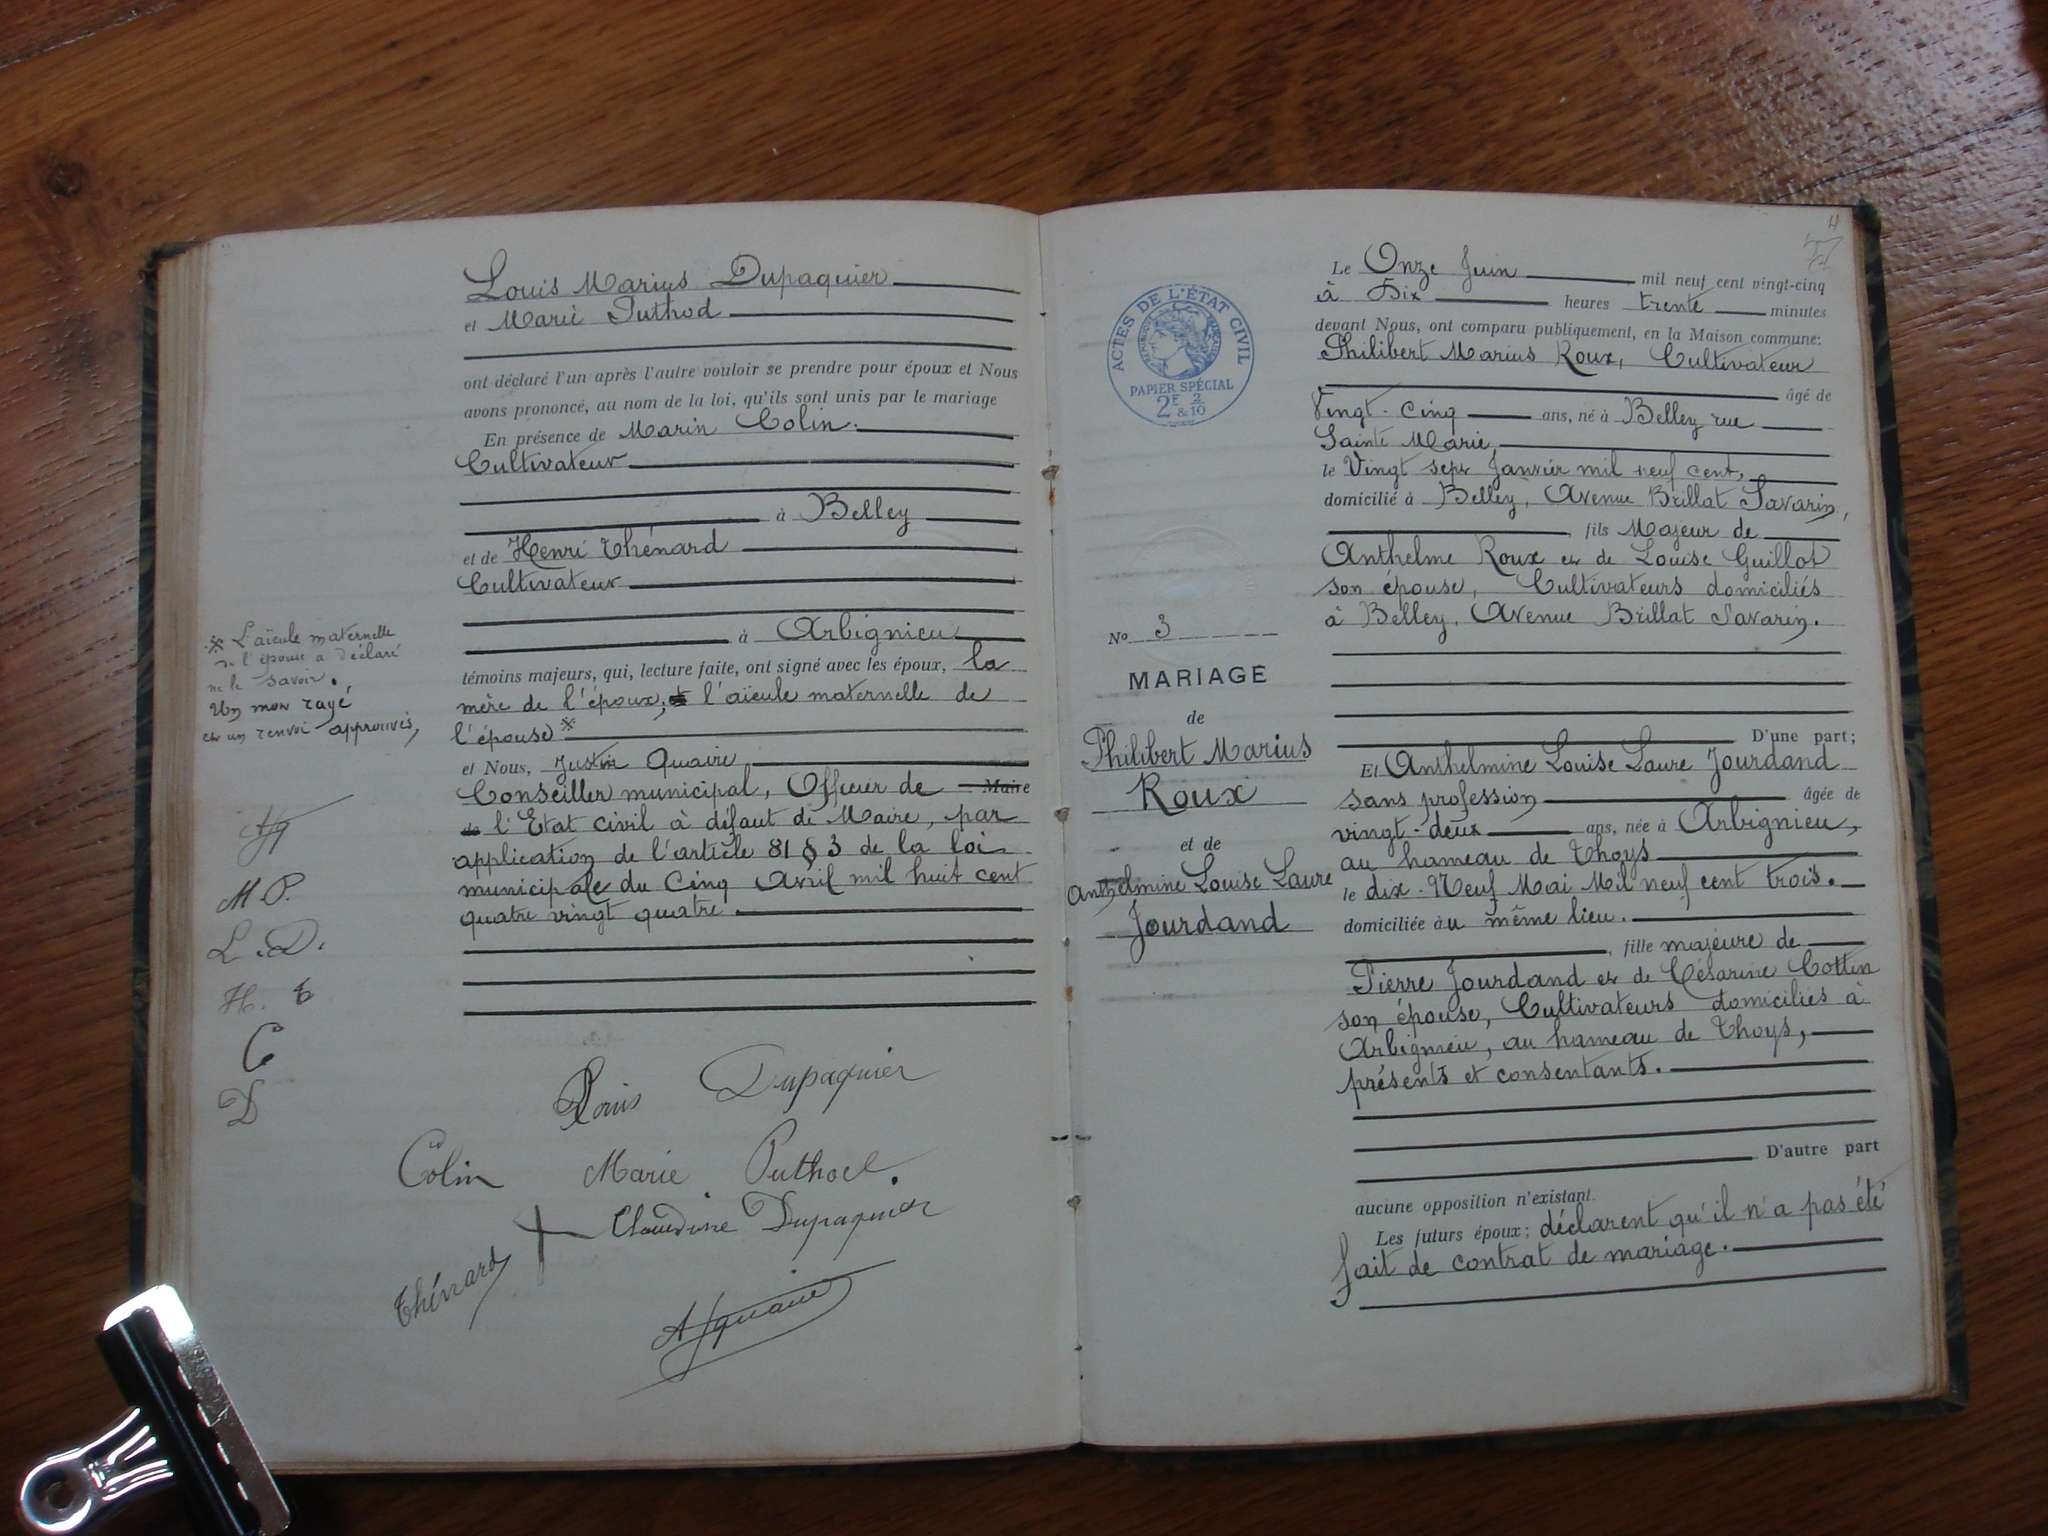 Louis Marius Dupaquier
et Marie Puthod
ont déclaré l'un après l'autre vouloir se prendre pour époux et Nous
avons prononcé, au nom de la loi, qu'ils sont unis par le mariage
En présence de Marin Colin.
Cultivateur
à Belley
et de Henri Thénard
Cultivateur
à Arbignieu
témoins majeurs, qui, lecture faite, ont signé avec les époux, la
mère de l'époux; et l'aïeule maternelle de
l'épouse※
et Nous, Justin Quaire
Conseiller municipal, Officier de Maire
de l'Etat civil à défaut de Maire, par
application de l'article 81 § 3 de la loi
municipale du Cinq Avril mil huit cent
quatre vingt quatre.
※ L'aïeule maternelle
de l'épouse a déclaré
ne le savoir.
Un mot rayé
et un renvoi approuvés,
M P.
L. D.
H. T
C
D
Louis Dupaquier
Colin Marie Puthod.
Claudine Dupaquier
Thénard
4
ACTES DE L'ÉTAT CIVIL
RÉPUBLIQUE FRANÇAISE
PAPIER SPÉCIAL
2F 2
& 10
No 3
MARIAGE
de
Philibert Marius
Roux
et de
Anthelmine Louise Laure
Jourdand
Le Onze Juin mil neuf cent vingt-cinq
à Dix heures trente minutes
devant Nous, ont comparu publiquement, en la Maison commune:
Philibert Marius Roux, Cultivateur
âgé de
Vingt-cinq ans, né à Belley rue
Sainte Marie,
le Vingt sept Janvier mil neuf cent,
domicilié à Belley, Avenue Brillat Savarin,
fils Majeur de
Anthelme Roux et de Louise Guillot
son épouse, Cultivateurs domiciliés
à Belley, Avenue Brillat Savarin.
D'une part;
Et Anthelmine Louise Laure Jourdand
sans profession âgée de
vingt-deux ans, née à Arbignieu,
au hameau de Thoys
le dix-Neuf Mai Mil neuf cent trois.
domiciliée àu même lieu.
, fille majeure de
Pierre Jourdand et de Césarine Cottin
son épouse, Cultivateurs domiciliés à
Arbignieu, au hameau de Thoys,
présents et consentants.
D'autre part
aucune opposition n'existant.
Les futurs époux; déclarent qu'il n'a pas été
fait de contrat de mariage.